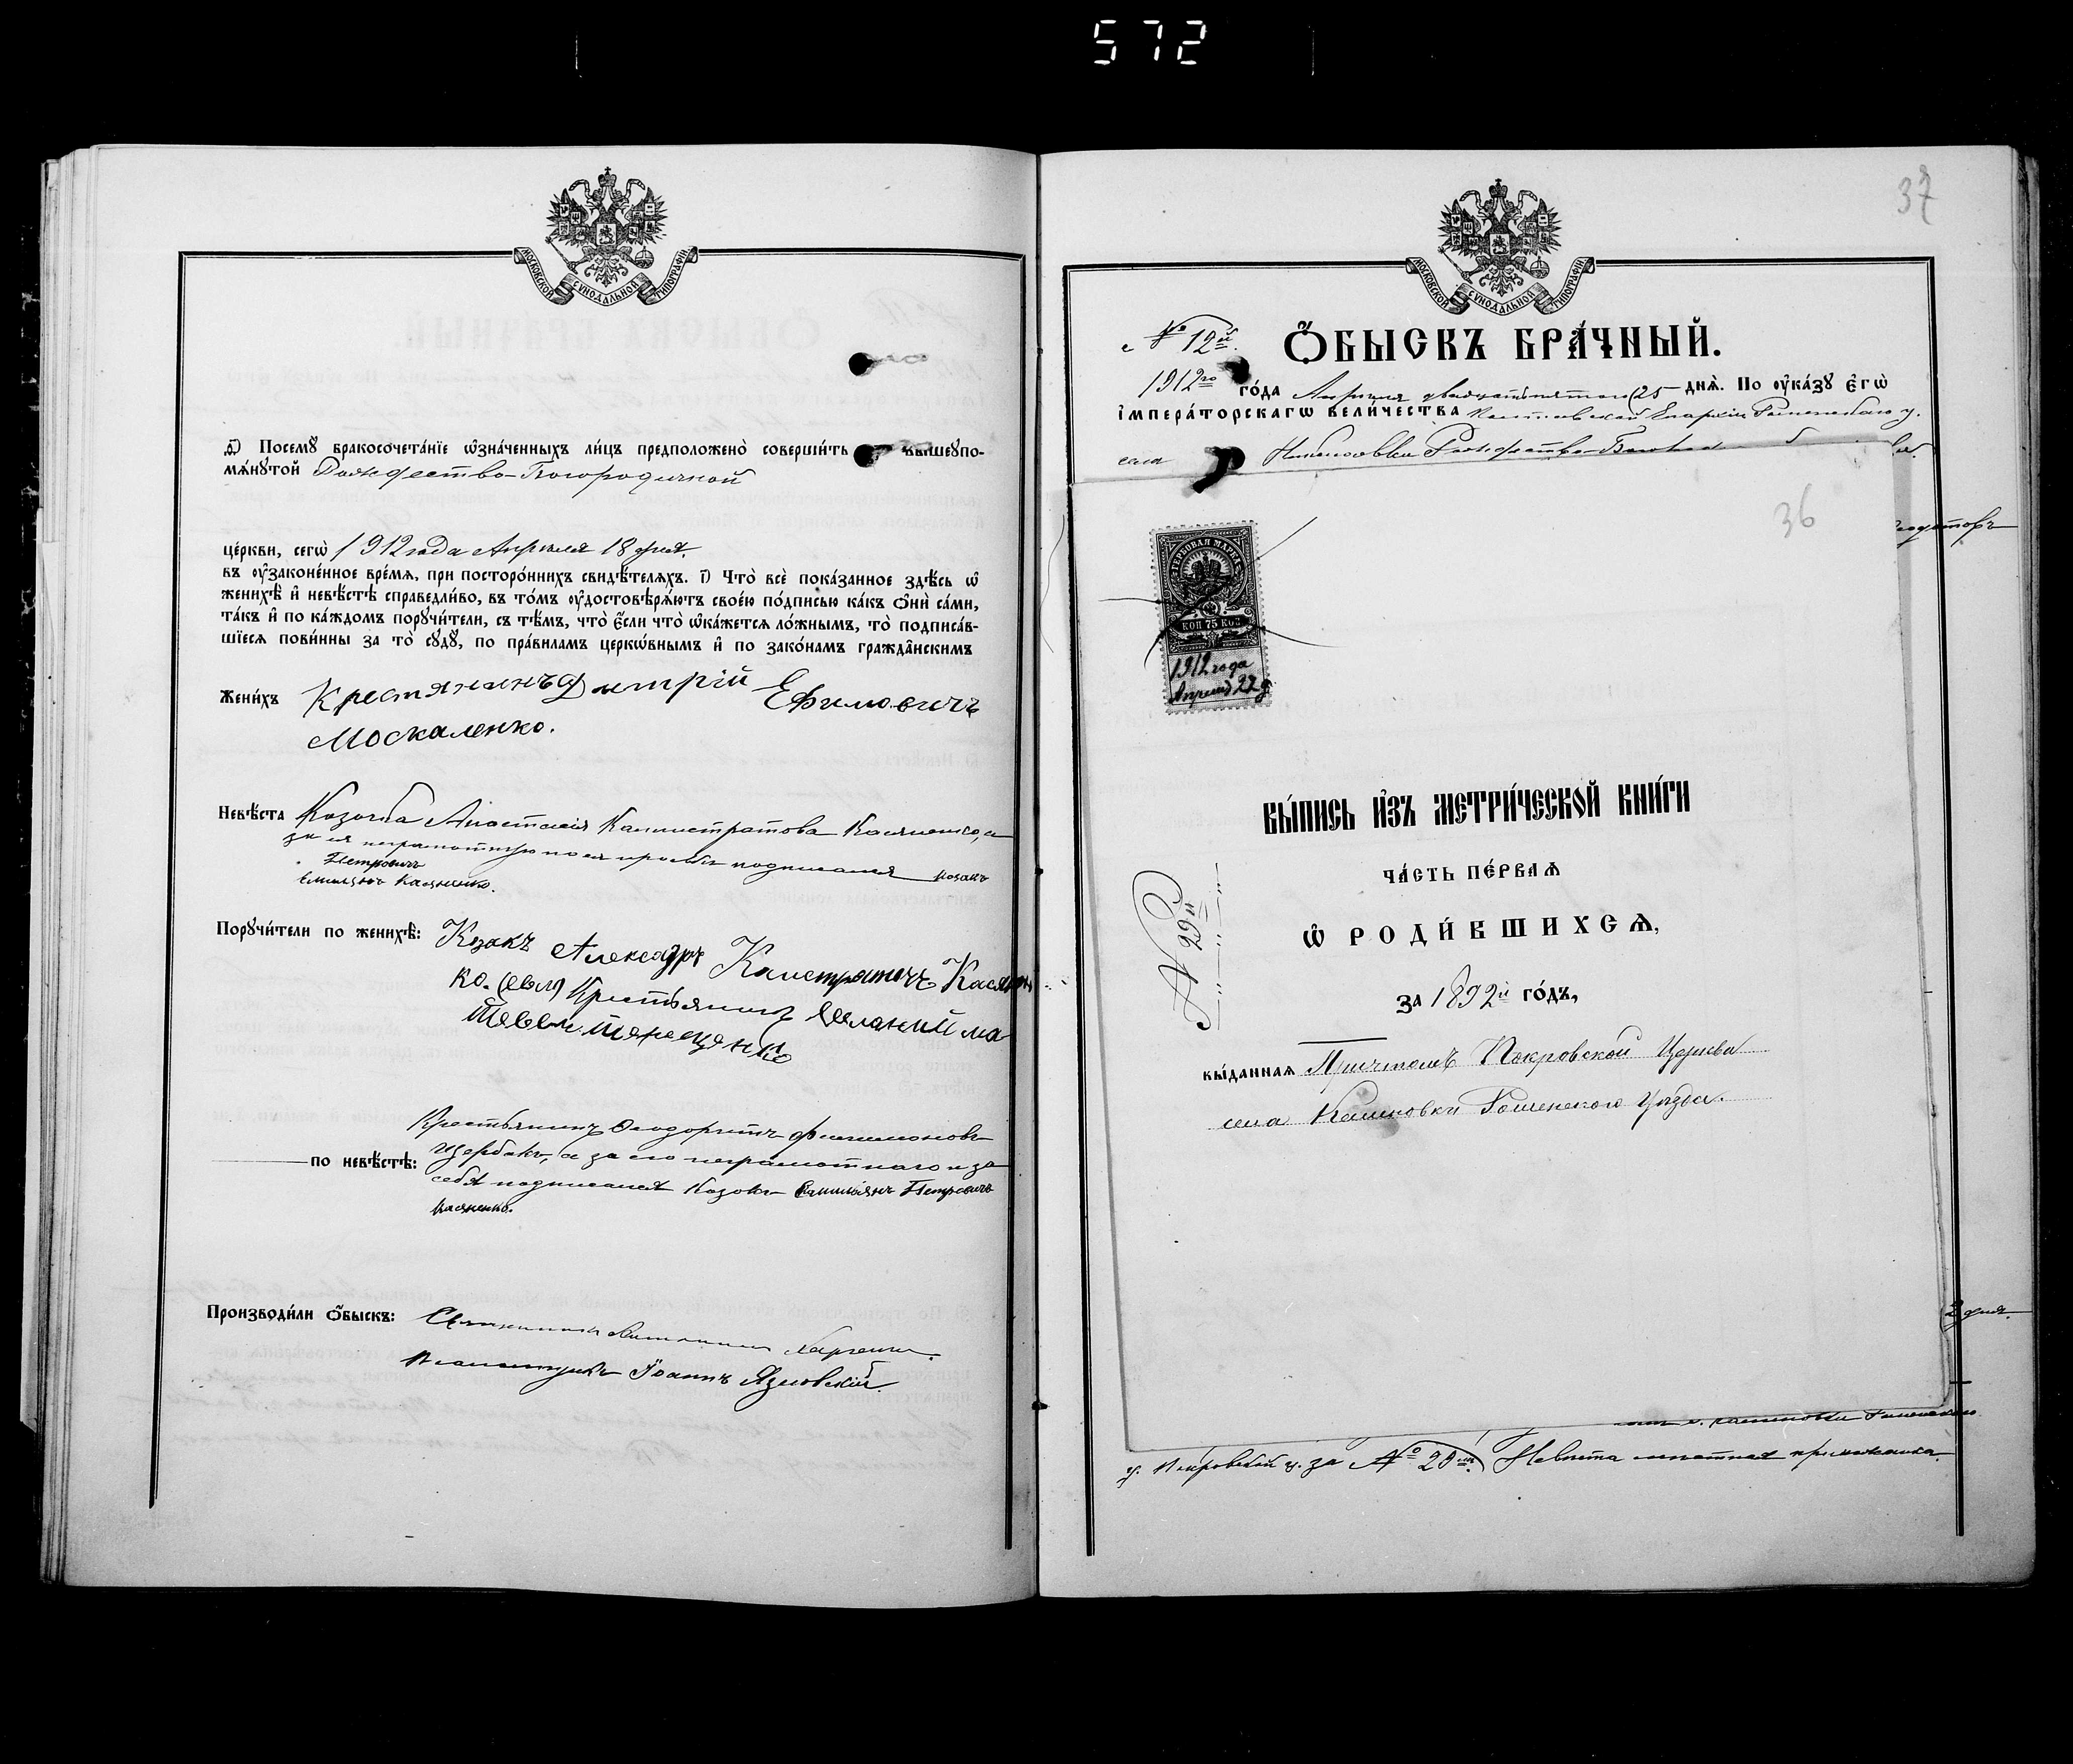 572
МОСКОВСКОЙ СѴНОДАЛЬНОЙ ТИПОГРАФІИ
в҃) Посемꙋ̀ бракосочета́нїе ѡ҆зна́ченныхъ ли́цъ предположено̀ соверши́ть въ вышеꙋпо-
мѧ́нꙋтой Рождество-Богородичной
це́ркви, сегѡ̀ 1912 года Апрѣля 18 дня.
въ ᲂу҆зако́ненное вре́мѧ, при посторо́ннихъ свидѣ́телѧхъ. г҃) Что̀ всѐ пока́занное здѣ́сь ѡ҆
женихѣ̀ и҆ невѣ́стѣ справедли́во, въ то́мъ ᲂу҆достовѣрѧ́ютъ свое́ю по́дписью ка́къ ѻ҆нѝ са́ми,
та́къ и҆ по ка́ждомъ порꙋчи́тели, съ тѣ́мъ, что̀ є҆́сли что̀ ѡ҆ка́жетсѧ ло́жнымъ, то̀ подписа́в-
шїесѧ пови́нны за то̀ сꙋдꙋ̀, по пра́виламъ церко́внымъ и҆ по зако́намъ гражда́нскимъ
Жени́хъ Крестянинъ Дмитрій Ефимовичъ
Москаленко.
Невѣ́ста Козачка Анастасія Каллистратова Касяненко, а
за ея неграмотную по ея просьбѣ подписался козакъ
Петровичъ
Емиліянъ Касяненко.
Порꙋчи́тели по женихѣ̀: Козакъ Александръ Калистратичъ Касянен
ко. Крестьянинъ
по невѣ́стѣ: Крестьянинъ Филимоновъ
Щербакъ, а за его неграмотнаго и за
себя подписался Козакъ Емиліянъ Петровичъ
Касяненко.
Производи́ли ѻ҆́быскъ: Священникъ
Псаломщикъ Іоаннъ Язловскій.
37
МОСКОВСКОЙ СѴНОДАЛЬНОЙ ТИПОГРАФІИ
№ 12й.
Ѻ҆́БЫСКЪ БРА́ЧНЫЙ.
1912го го́да Апрѣля двадцать пятаго (25 днѧ̀. По ᲂу҆ка́зꙋ є҆гѡ̀
і҆мпера́торскагѡ вели́чества Полтавской Епархіи Роменскаго у.
села Рождество-Бого
36
ГЕРБОВАЯ МАРКА
КОП 75 КОП
1912 года
Апрѣля 22 д
ВЫ́ПИСЬ И҆ЗЪ МЕТРИ́ЧЕСКОЙ КНИ́ГИ
ЧА́СТЬ ПЕ́РВАѦ
Ѡ҆ РОДИ́ВШИХСѦ,
№ 29й
за 1892й го́дъ,
вы́даннаѧ Причтомъ Покровской Церкви
села Калиновки Роменскаго Уѣзда.
дня.
с. Калиновки Роменскаго
у. Покровской ц. за № 29 м. Невѣста мѣстная прихожанка.